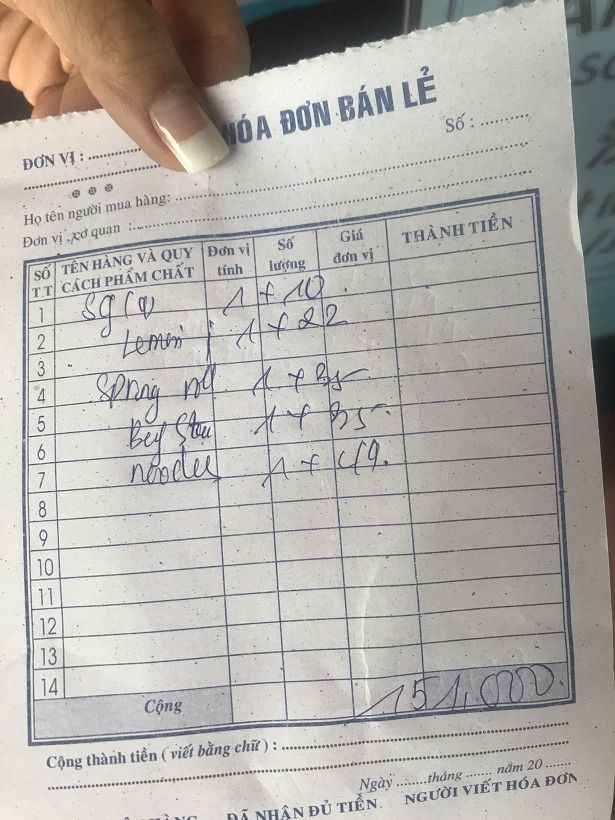 HÓA ĐƠN BÁN LẺ
ĐƠN VỊ : ..........
Số : .........
Họ tên người mua hàng: ..........
Đơn vị ,cơ quan : ..........
SỐ TT TÊN HÀNG VÀ QUY CÁCH PHẨM CHẤT Đơn vị tính Số lượng Giá đơn vị THÀNH TIỀN
1 Sg 1 + 10
2 Lemon j 1 + 22
3
4 Spring roll 1 + 35
5 1 + 35
6
7 noodle 1 + 49.
8
9
10
11
12
13
14
Cộng 151,000.
Cộng thành tiền ( viết bằng chữ ) : ..........
Ngày ........tháng ....... năm 20 .......
ĐÃ NHẬN ĐỦ TIỀN NGƯỜI VIẾT HÓA ĐƠN